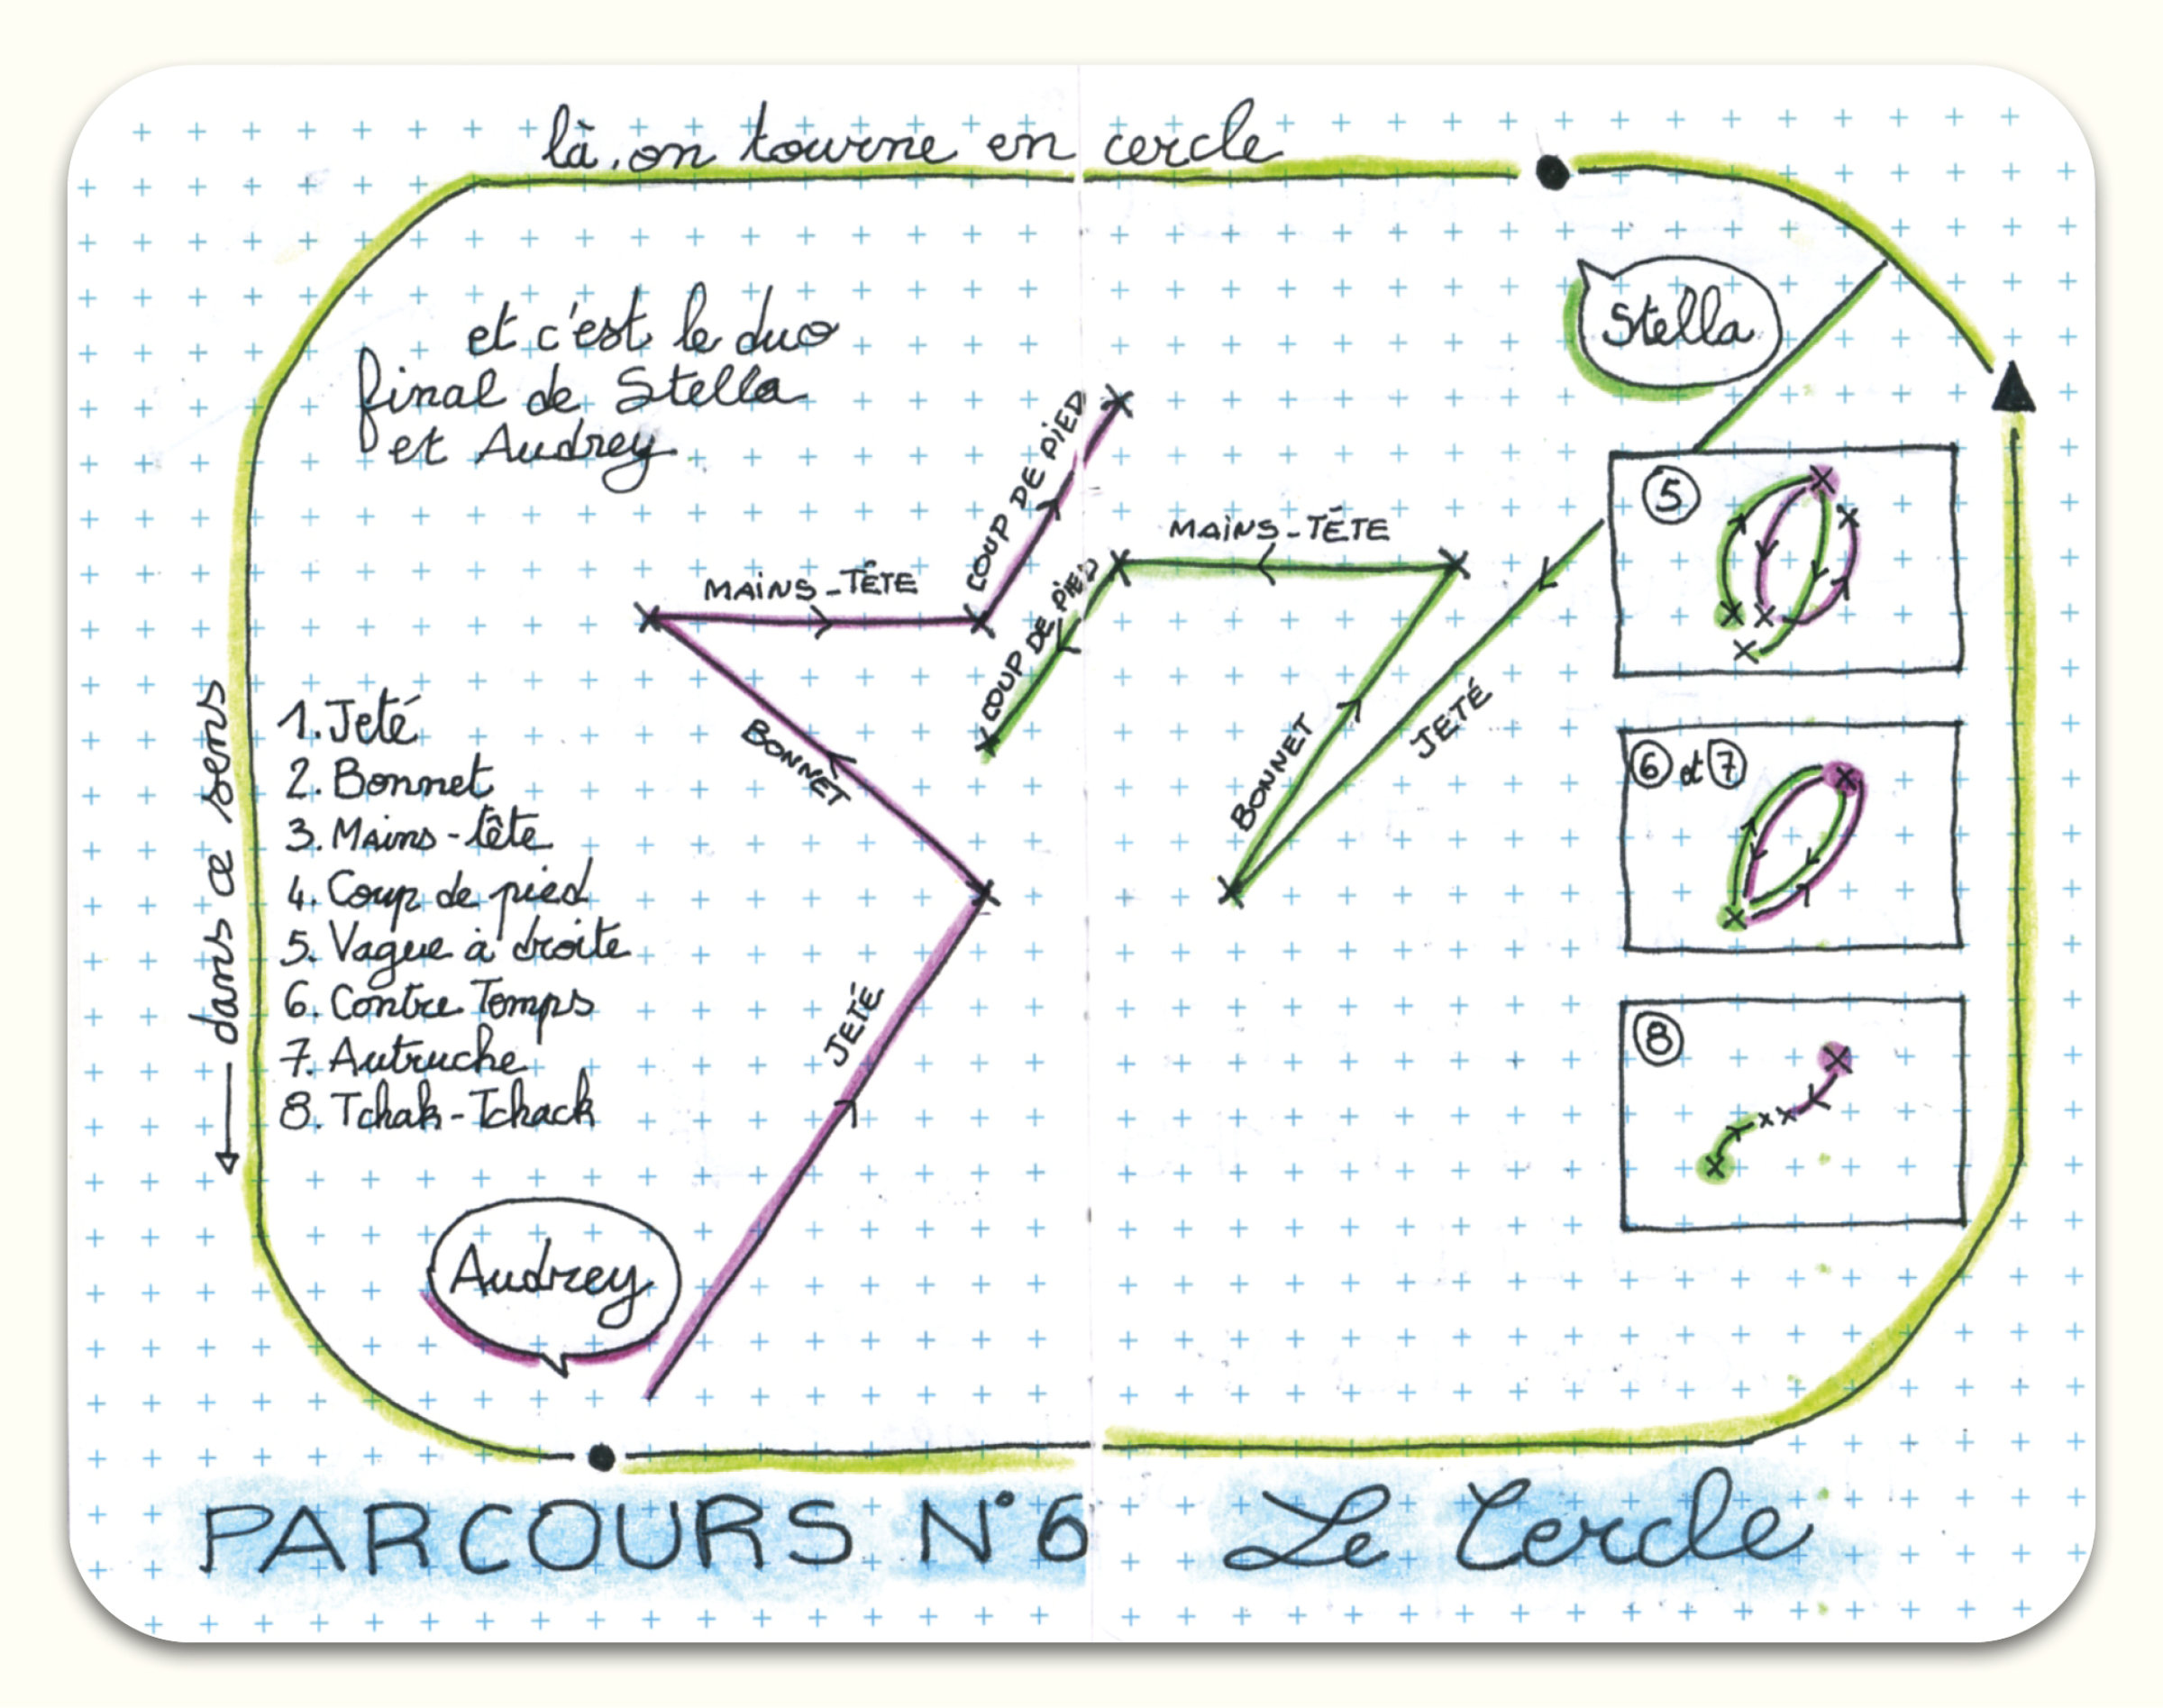 là, on tourne en cercle
et c'est le duo
final de Stella
et Audrey
Stella
COUP DE PIED
MAINS-TÊTE
MAINS-TÊTE
COUP DE PIED
BONNET
BONNET
JETÉ
JETÉ
5
6 et 7
8
dans ce sens
1. Jeté
2. Bonnet
3. Mains-tête
4. Coup de pied
5. Vague à droite
6. Contre Temps
7. Autruche
8. Tchak-Tchack
Audrey
PARCOURS N°6 Le Cercle